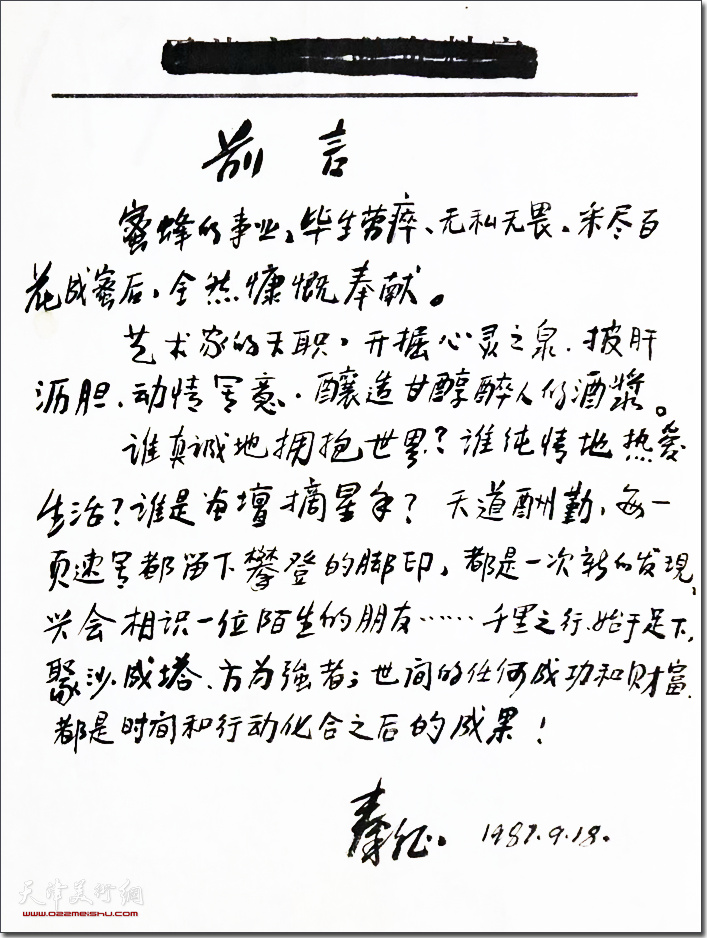 前言
蜜蜂的事业,毕生劳瘁、无私无畏。采尽百
花成蜜后,全然慷慨奉献。
艺术家的天职,开掘心灵之泉.披肝
沥胆、动情写意.釀造甘醇醉人的酒漿。
谁真诚地拥抱世界?谁纯情地热爱
生活?谁是画壇摘星手?天道酬勤,每一
页速写都留下攀登的脚印,都是一次新的发现,
兴会相识一位陌生的朋友……千里之行,始于足下,
聚沙成塔、方为強者;世间的任何成功和财富
都是时间和行动化合之后的成果!
秦征. 1987.9.18.
天津美術網
www.022meishu.com